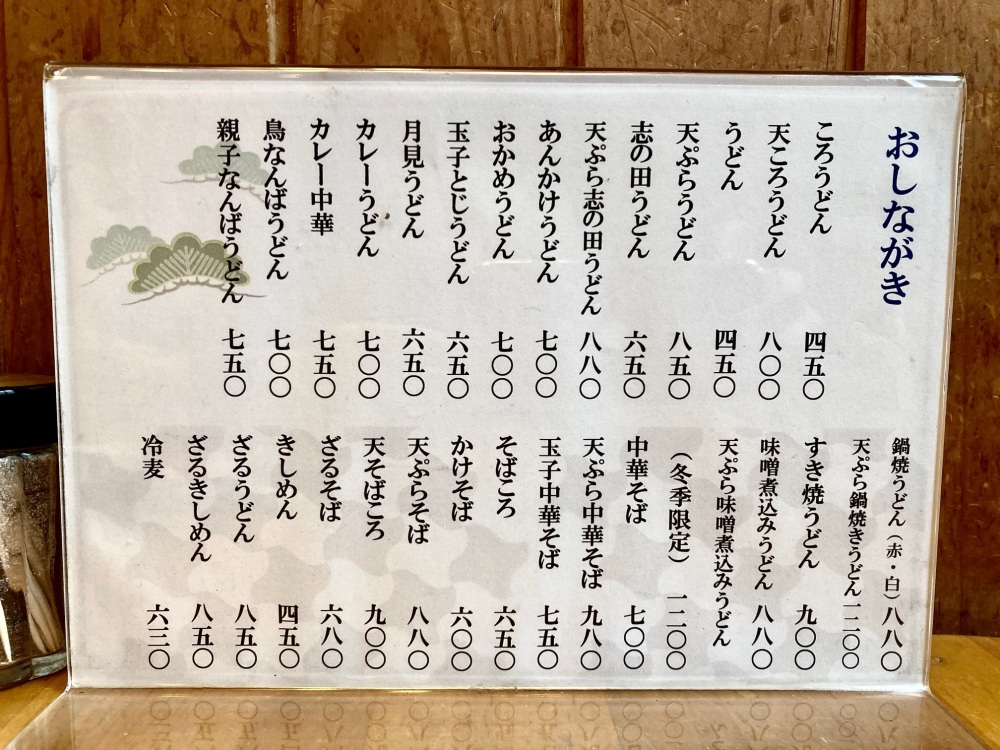 おしながき
ころうどん 四五〇
天ころうどん 八〇〇
うどん 四五〇
天ぷらうどん 八五〇
志の田うどん 六五〇
天ぷら志の田うどん 八八〇
あんかけうどん 七〇〇
おかめうどん 七〇〇
玉子とじうどん 六五〇
月見うどん 六五〇
カレーうどん 七〇〇
カレー中華 七五〇
鳥なんばうどん 七〇〇
親子なんばうどん 七五〇
鍋焼うどん（赤・白） 八八〇
天ぷら鍋焼きうどん 一二〇〇
すき焼うどん 九〇〇
味噌煮込みうどん 八八〇
天ぷら味噌煮込みうどん
（冬季限定） 一二〇〇
中華そば 七〇〇
天ぷら中華そば 九八〇
玉子中華そば 七五〇
そばころ 六五〇
かけそば 六〇〇
天ぷらそば 八八〇
天そばころ 九〇〇
ざるそば 六八〇
きしめん 四五〇
ざるうどん 八五〇
ざるきしめん 八五〇
冷麦 六三〇